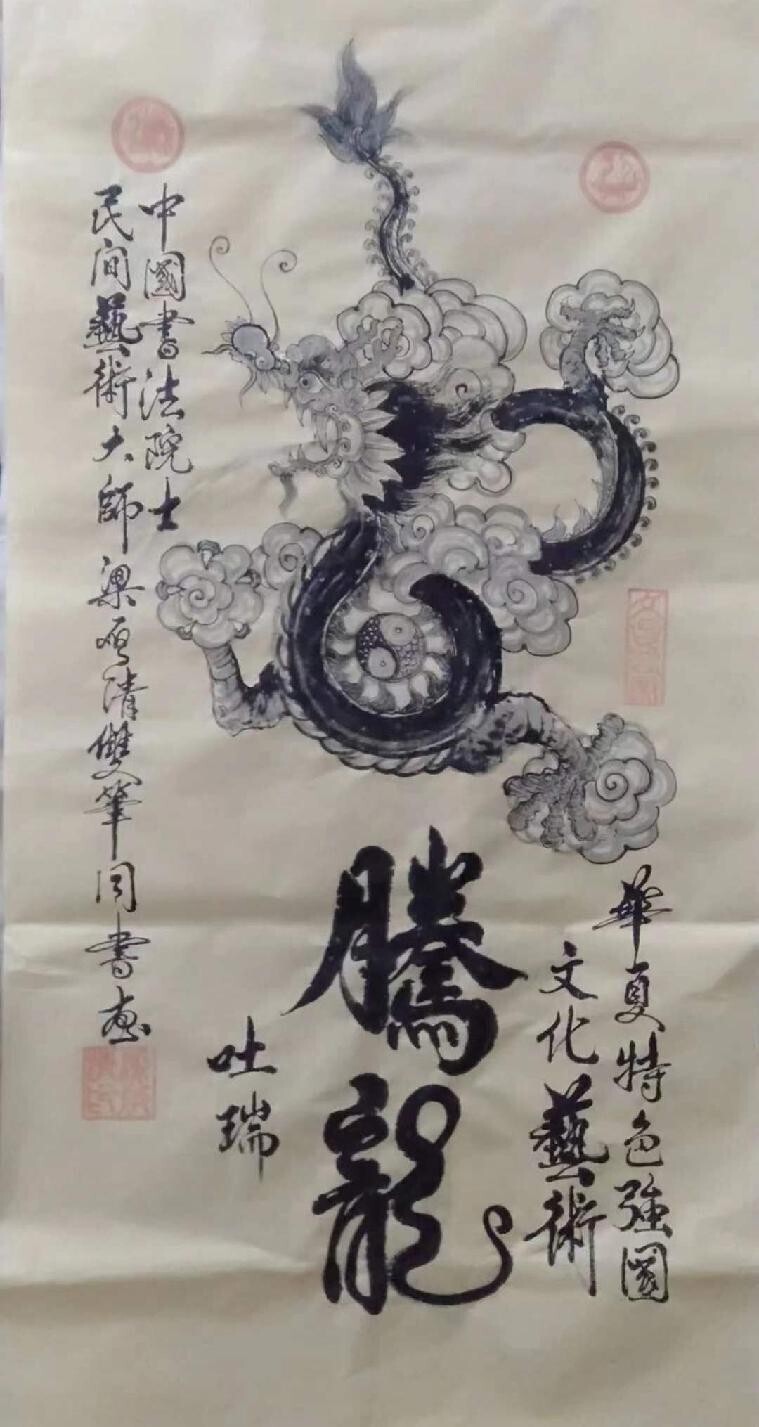 華夏特色強國
文化藝術
騰龍
吐瑞
中國書法院士
民间藝術大師梁雁清雙筆同書画